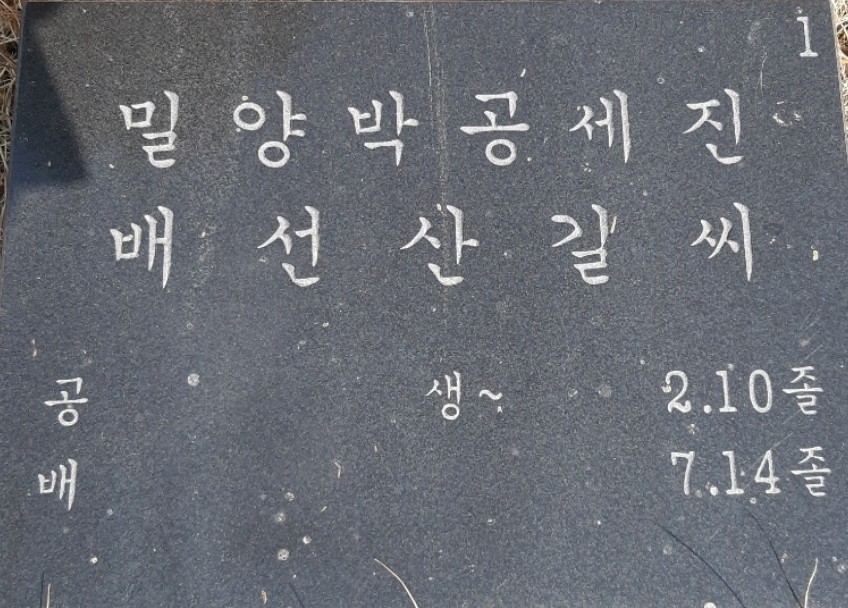 1
밀양박공세진
배선산길씨
공 생~ 2.10졸
배 7.14졸